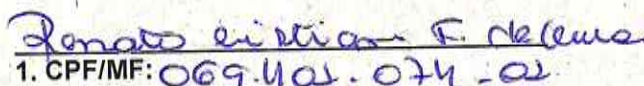 Renato Cristiam F. de Lima
1. CPF/MF: 069.402.074-02